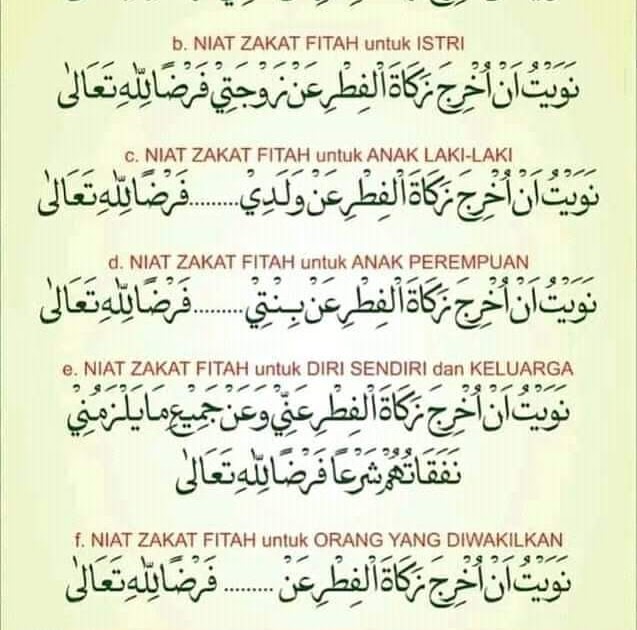 b. NIAT ZAKAT FITAH untuk ISTRI
نَوَيْتُ اَنْ اُخْرِجَ زَكَاةَ الْفِطْرِ عَنْ زَوْجَتِيْ فَرْضًا لِلّٰهِ تَعَالٰى
c. NIAT ZAKAT FITAH untuk ANAK LAKI-LAKI
نَوَيْتُ اَنْ اُخْرِجَ زَكَاةَ الْفِطْرِ عَنْ وَلَدِيْ.........فَرْضًا لِلّٰهِ تَعَالٰى
d. NIAT ZAKAT FITAH untuk ANAK PEREMPUAN
نَوَيْتُ اَنْ اُخْرِجَ زَكَاةَ الْفِطْرِ عَنْ بِنْتِيْ.........فَرْضًا لِلّٰهِ تَعَالٰى
e. NIAT ZAKAT FITAH untuk DIRI SENDIRI dan KELUARGA
نَوَيْتُ اَنْ اُخْرِجَ زَكَاةَ الْفِطْرِ عَنِّيْ وَعَنْ جَمِيْعِ مَا يَلْزَمُنِيْ
نَفَقَاتُهُمْ شَرْعًا فَرْضًا لِلّٰهِ تَعَالٰى
f. NIAT ZAKAT FITAH untuk ORANG YANG DIWAKILKAN
نَوَيْتُ اَنْ اُخْرِجَ زَكَاةَ الْفِطْرِ عَنْ ......... فَرْضًا لِلّٰهِ تَعَالٰى